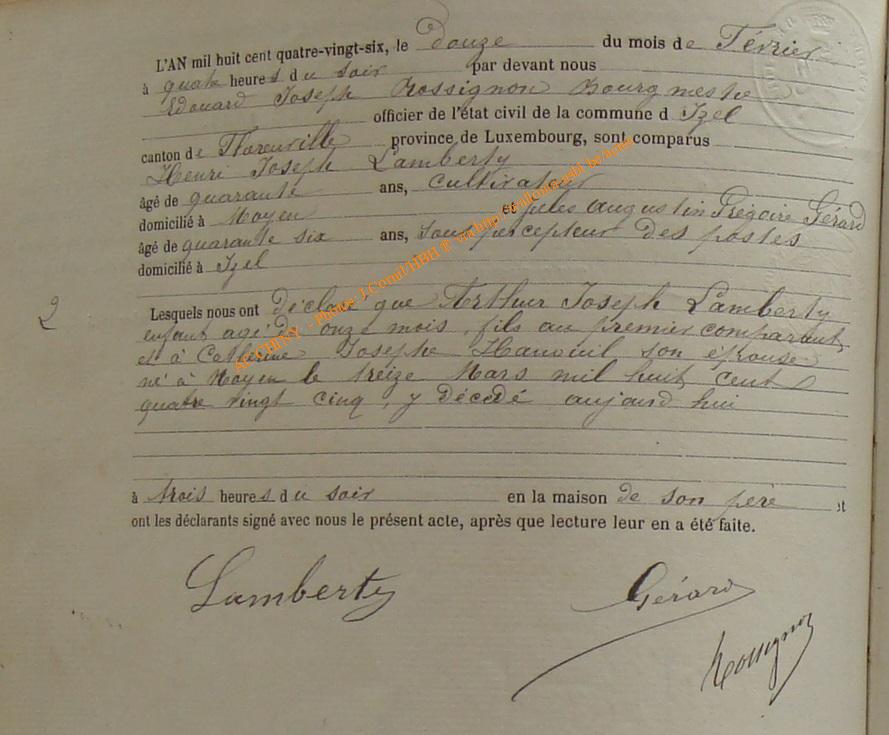 L'AN mil huit cent quatre-vingt-six, le Douze du mois de Février
à quatre heures du soir par devant nous
Edouard Joseph Rossignon Bourgmestre
officier de l'état civil de la commune d Izel
canton de Florenville province de Luxembourg, sont comparus
Henri Joseph Lamberty
âgé de quarante ans, cultivateur
domicilié à Moyen et Jules Augustin Grégoire Gérard
âgé de quarante six ans, sous percepteur des postes
domicilié à Izel
2
Lesquels nous ont déclaré que Arthur Joseph Lamberty
enfant agé de onze mois, fils au premier comparant
et à Catherine Josephe son épouse
né à Moyen le treize Mars mil huit cent
quatre vingt cinq, y décédé aujourd hui
à trois heures du soir en la maison de son père et
ont les déclarants signé avec nous le présent acte, après que lecture leur en a été faite.
Lamberty
Gérard
Rossignon